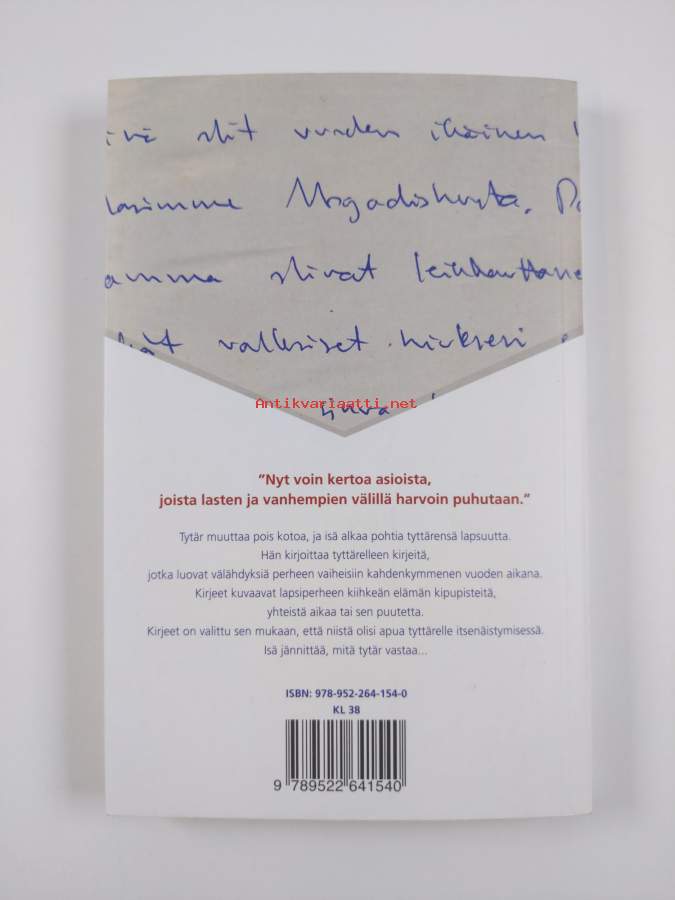 olit vuoden ikäinen
Mogadishusta.
olivat leikkauttane
valkoiset hiuksesi
Antikvariaatti.net
”Nyt voin kertoa asioista,
joista lasten ja vanhempien välillä harvoin puhutaan.”
Tytär muuttaa pois kotoa, ja isä alkaa pohtia tyttärensä lapsuutta.
Hän kirjoittaa tyttärelleen kirjeitä,
jotka luovat välähdyksiä perheen vaiheisiin kahdenkymmenen vuoden aikana.
Kirjeet kuvaavat lapsiperheen kiihkeän elämän kipupisteitä,
yhteistä aikaa tai sen puutetta.
Kirjeet on valittu sen mukaan, että niistä olisi apua tyttärelle itsenäistymisessä.
Isä jännittää, mitä tytär vastaa...
ISBN: 978-952-264-154-0
KL 38
9 789522 641540